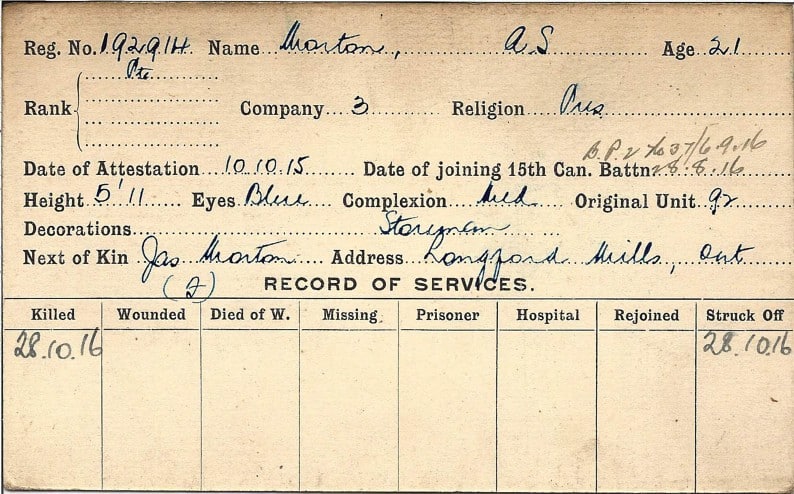 Reg. No. 192914 Name Morton, A S Age 21
Pte
Rank Company 3 Religion Pres
B.P.2 37/6.9.16
Date of Attestation 10.10.15 Date of joining 15th Can. Battn 28.8.16
Height 5'11 Eyes Blue Complexion Med Original Unit 92
Decorations Storeman
Next of Kin Jas Morton Address Longford Mills, Ont
(F) RECORD OF SERVICES.
Killed Wounded Died of W. Missing Prisoner Hospital Rejoined Struck Off
28.10.16 28.10.16